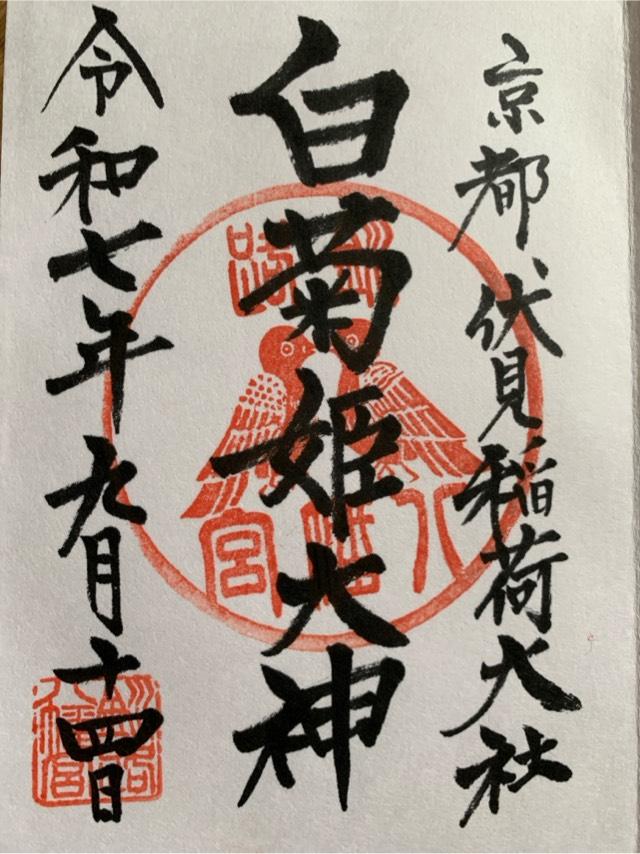 京都、伏見稲荷大社
白菊姫大神
令和七年九月十四日
八幡宮